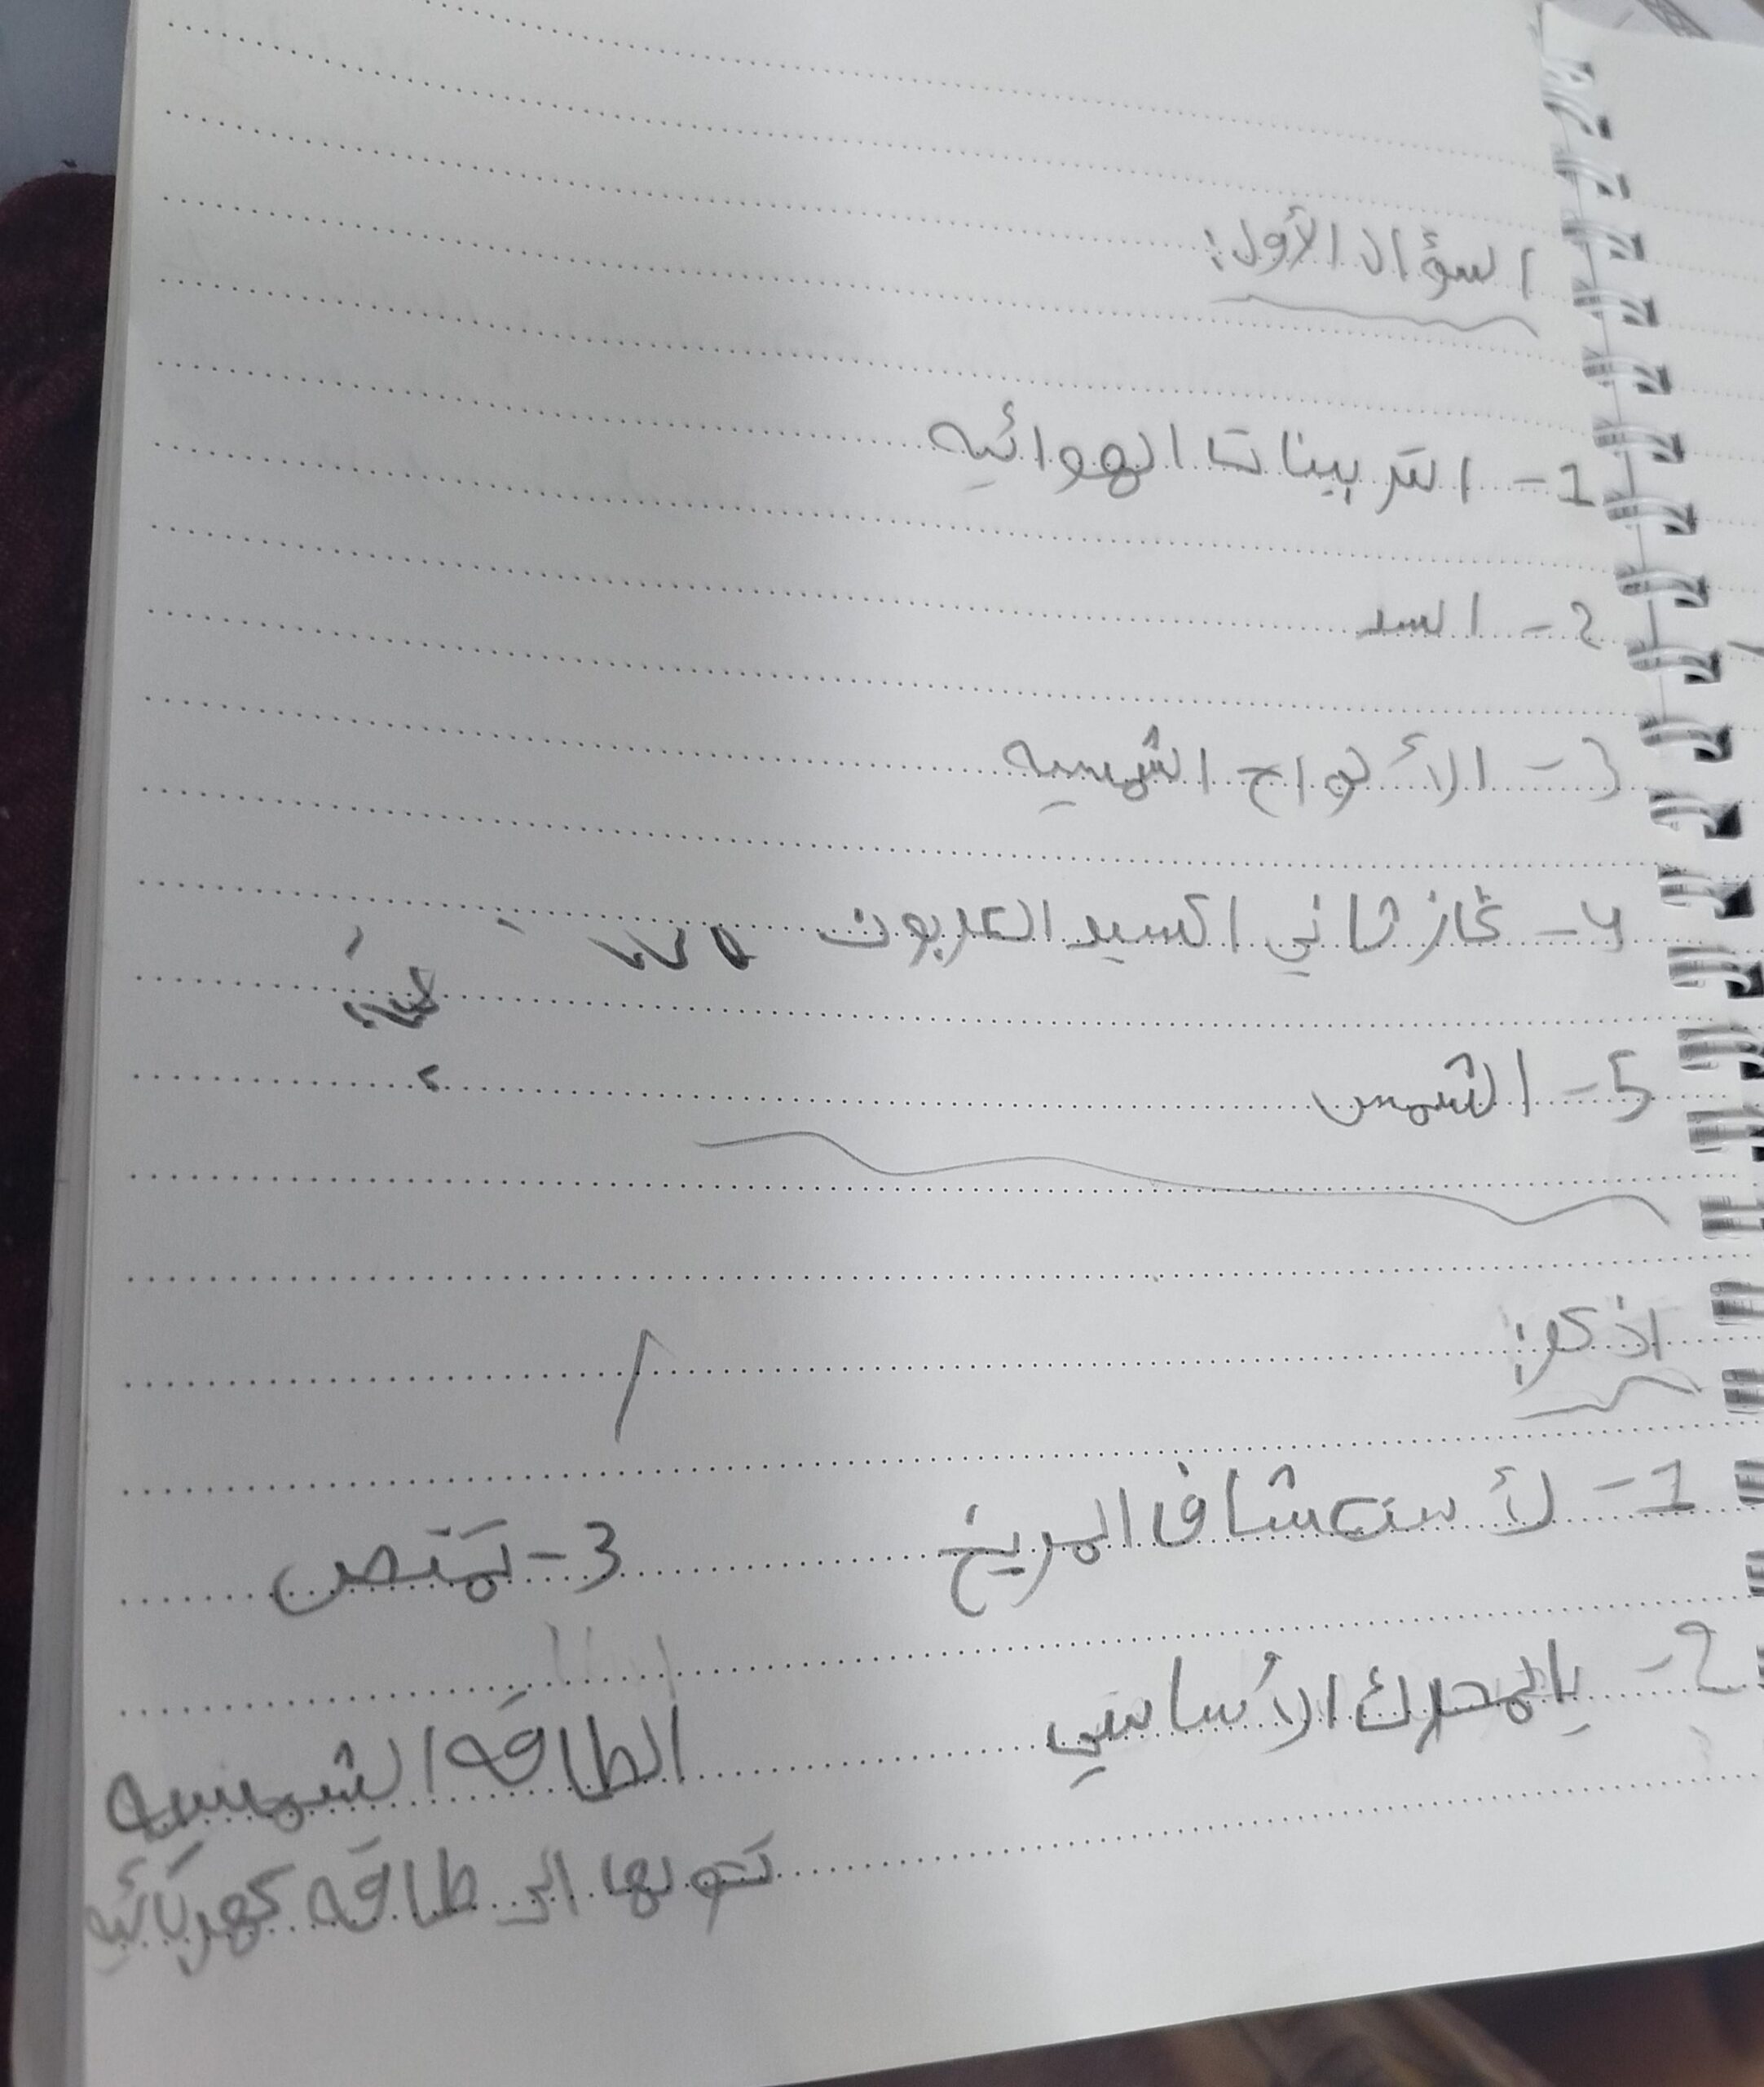 السؤال الأول:
1- التربينات الهوائيه
2- السد
3- الألواح الشمسيه
4- غاز ثاني اكسيد الكربون
5- الشمس
اذكر:
1- لأستكشاف المريخ
2- بالمحرك الأساسي
3- تمتص
الطاقه الشمسيه
تحولها الى طاقه كهربائيه